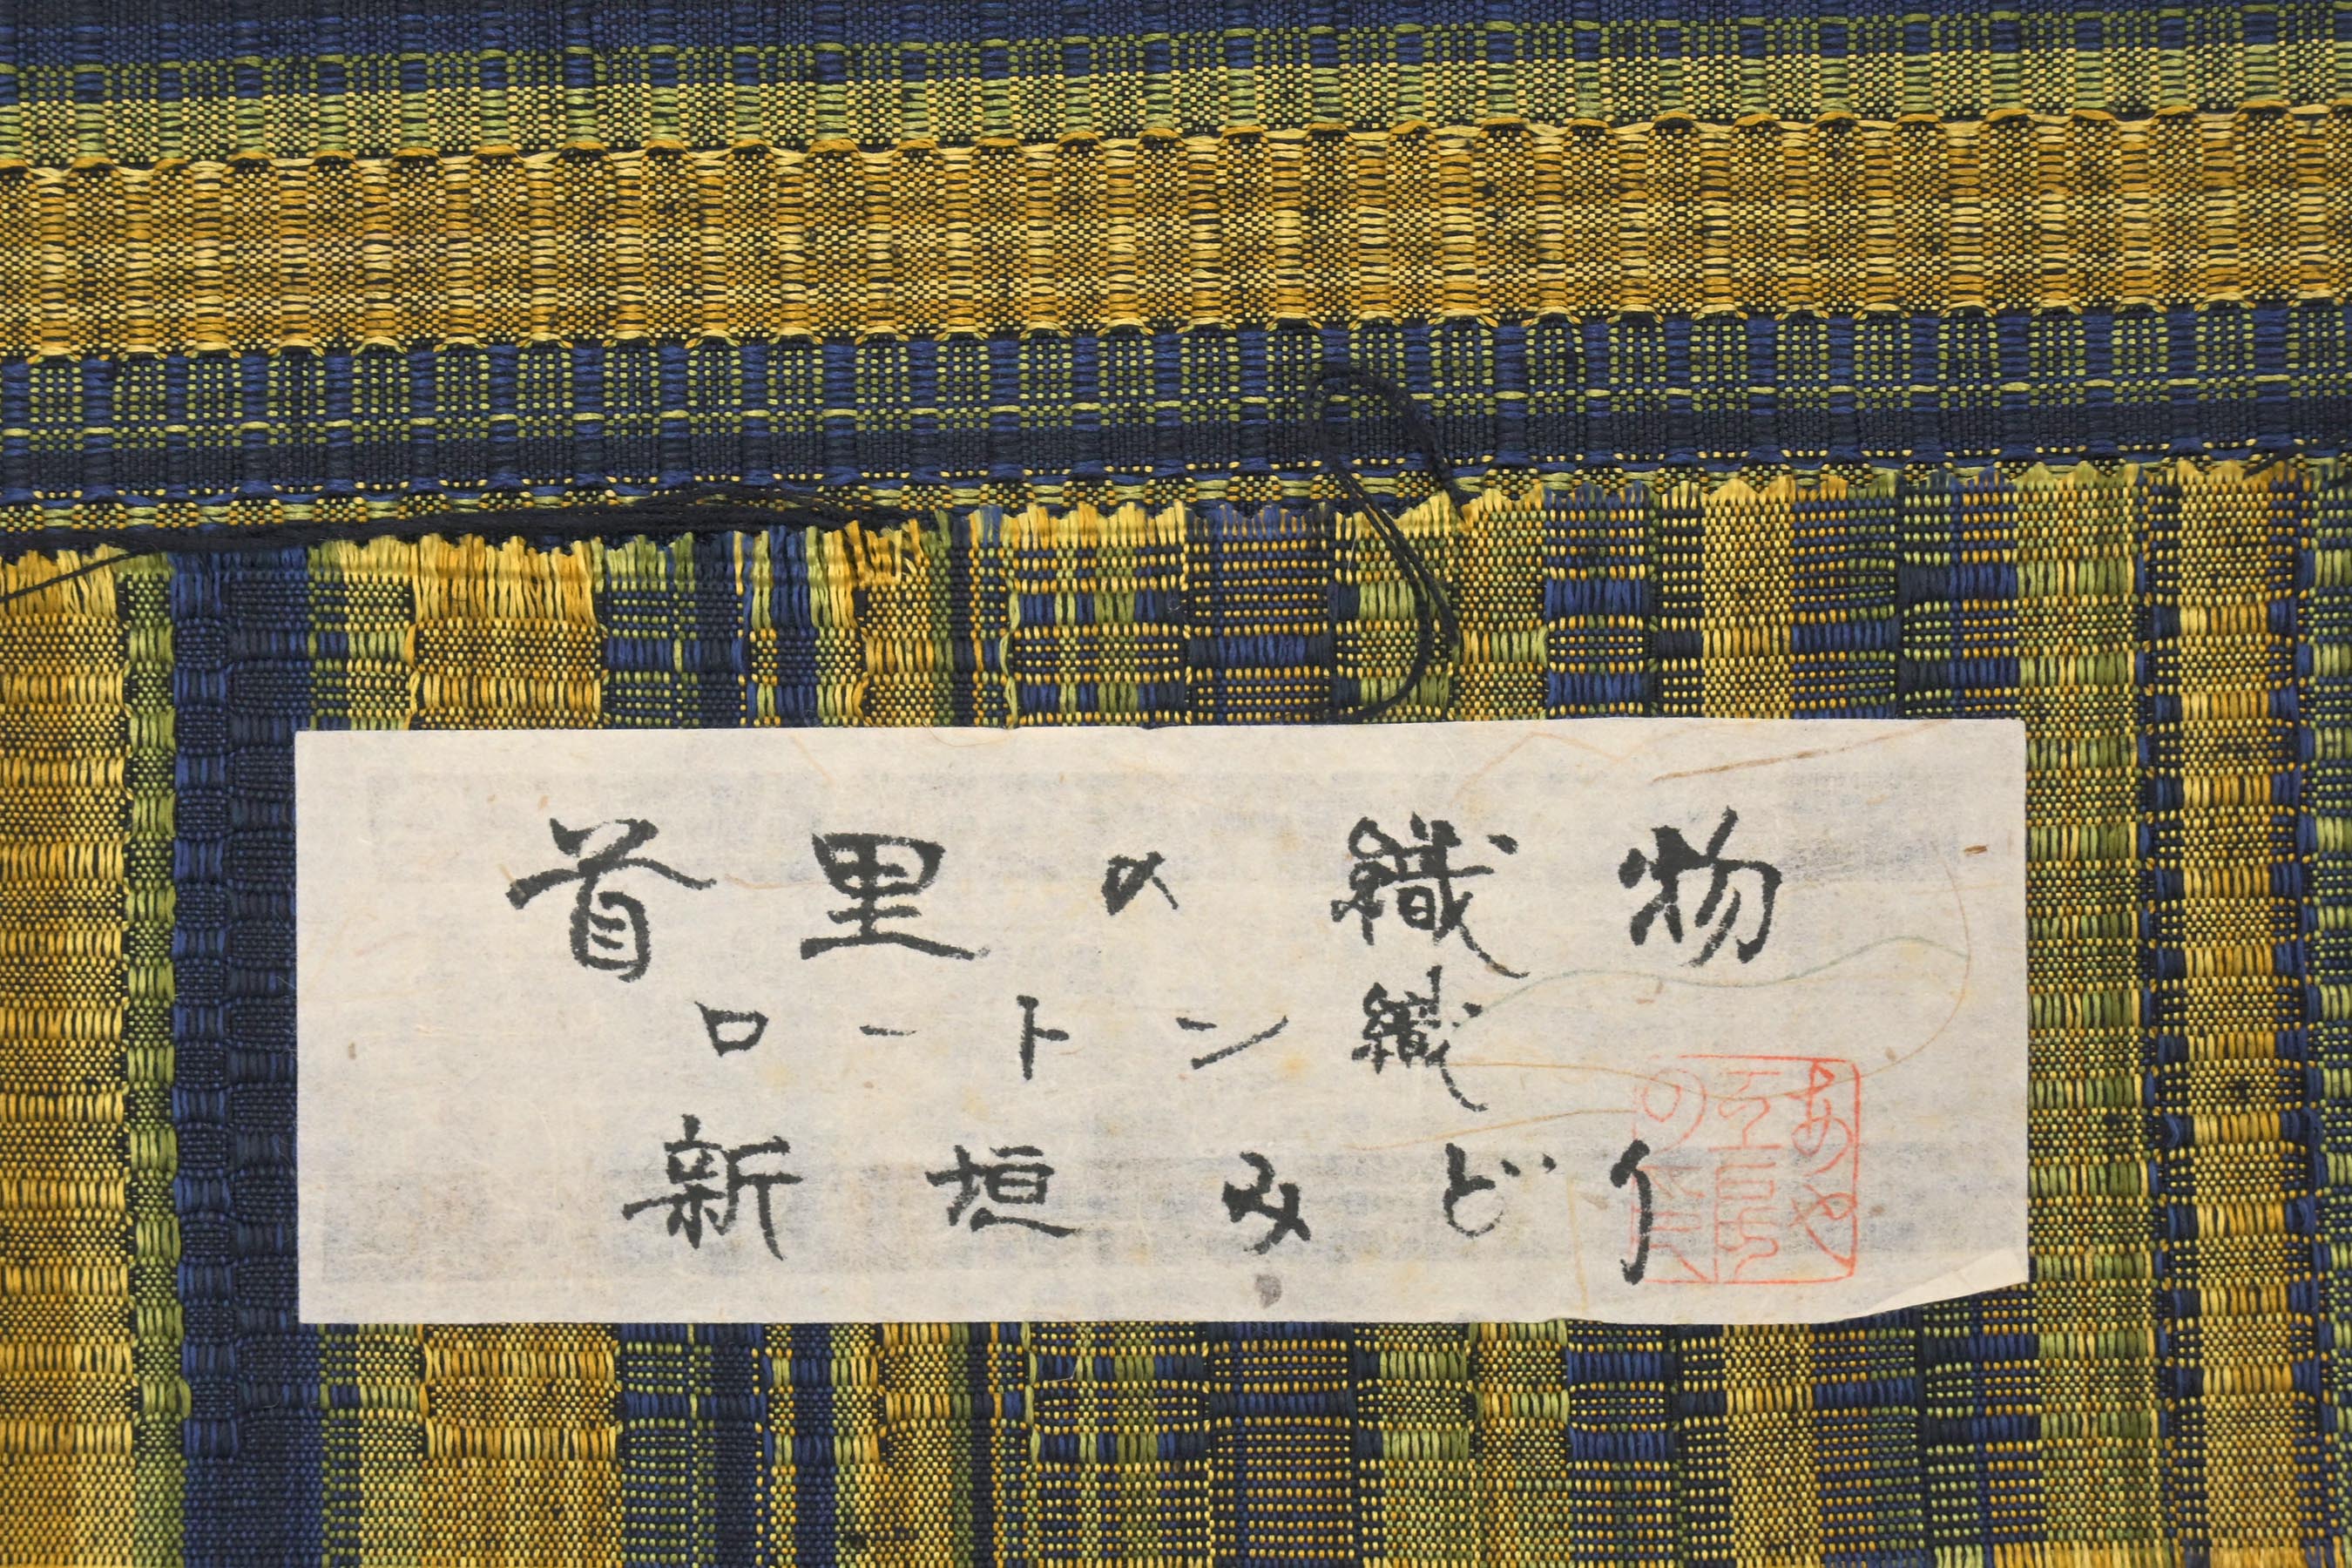 首里の織物
ロートン織
新垣みどり
あや